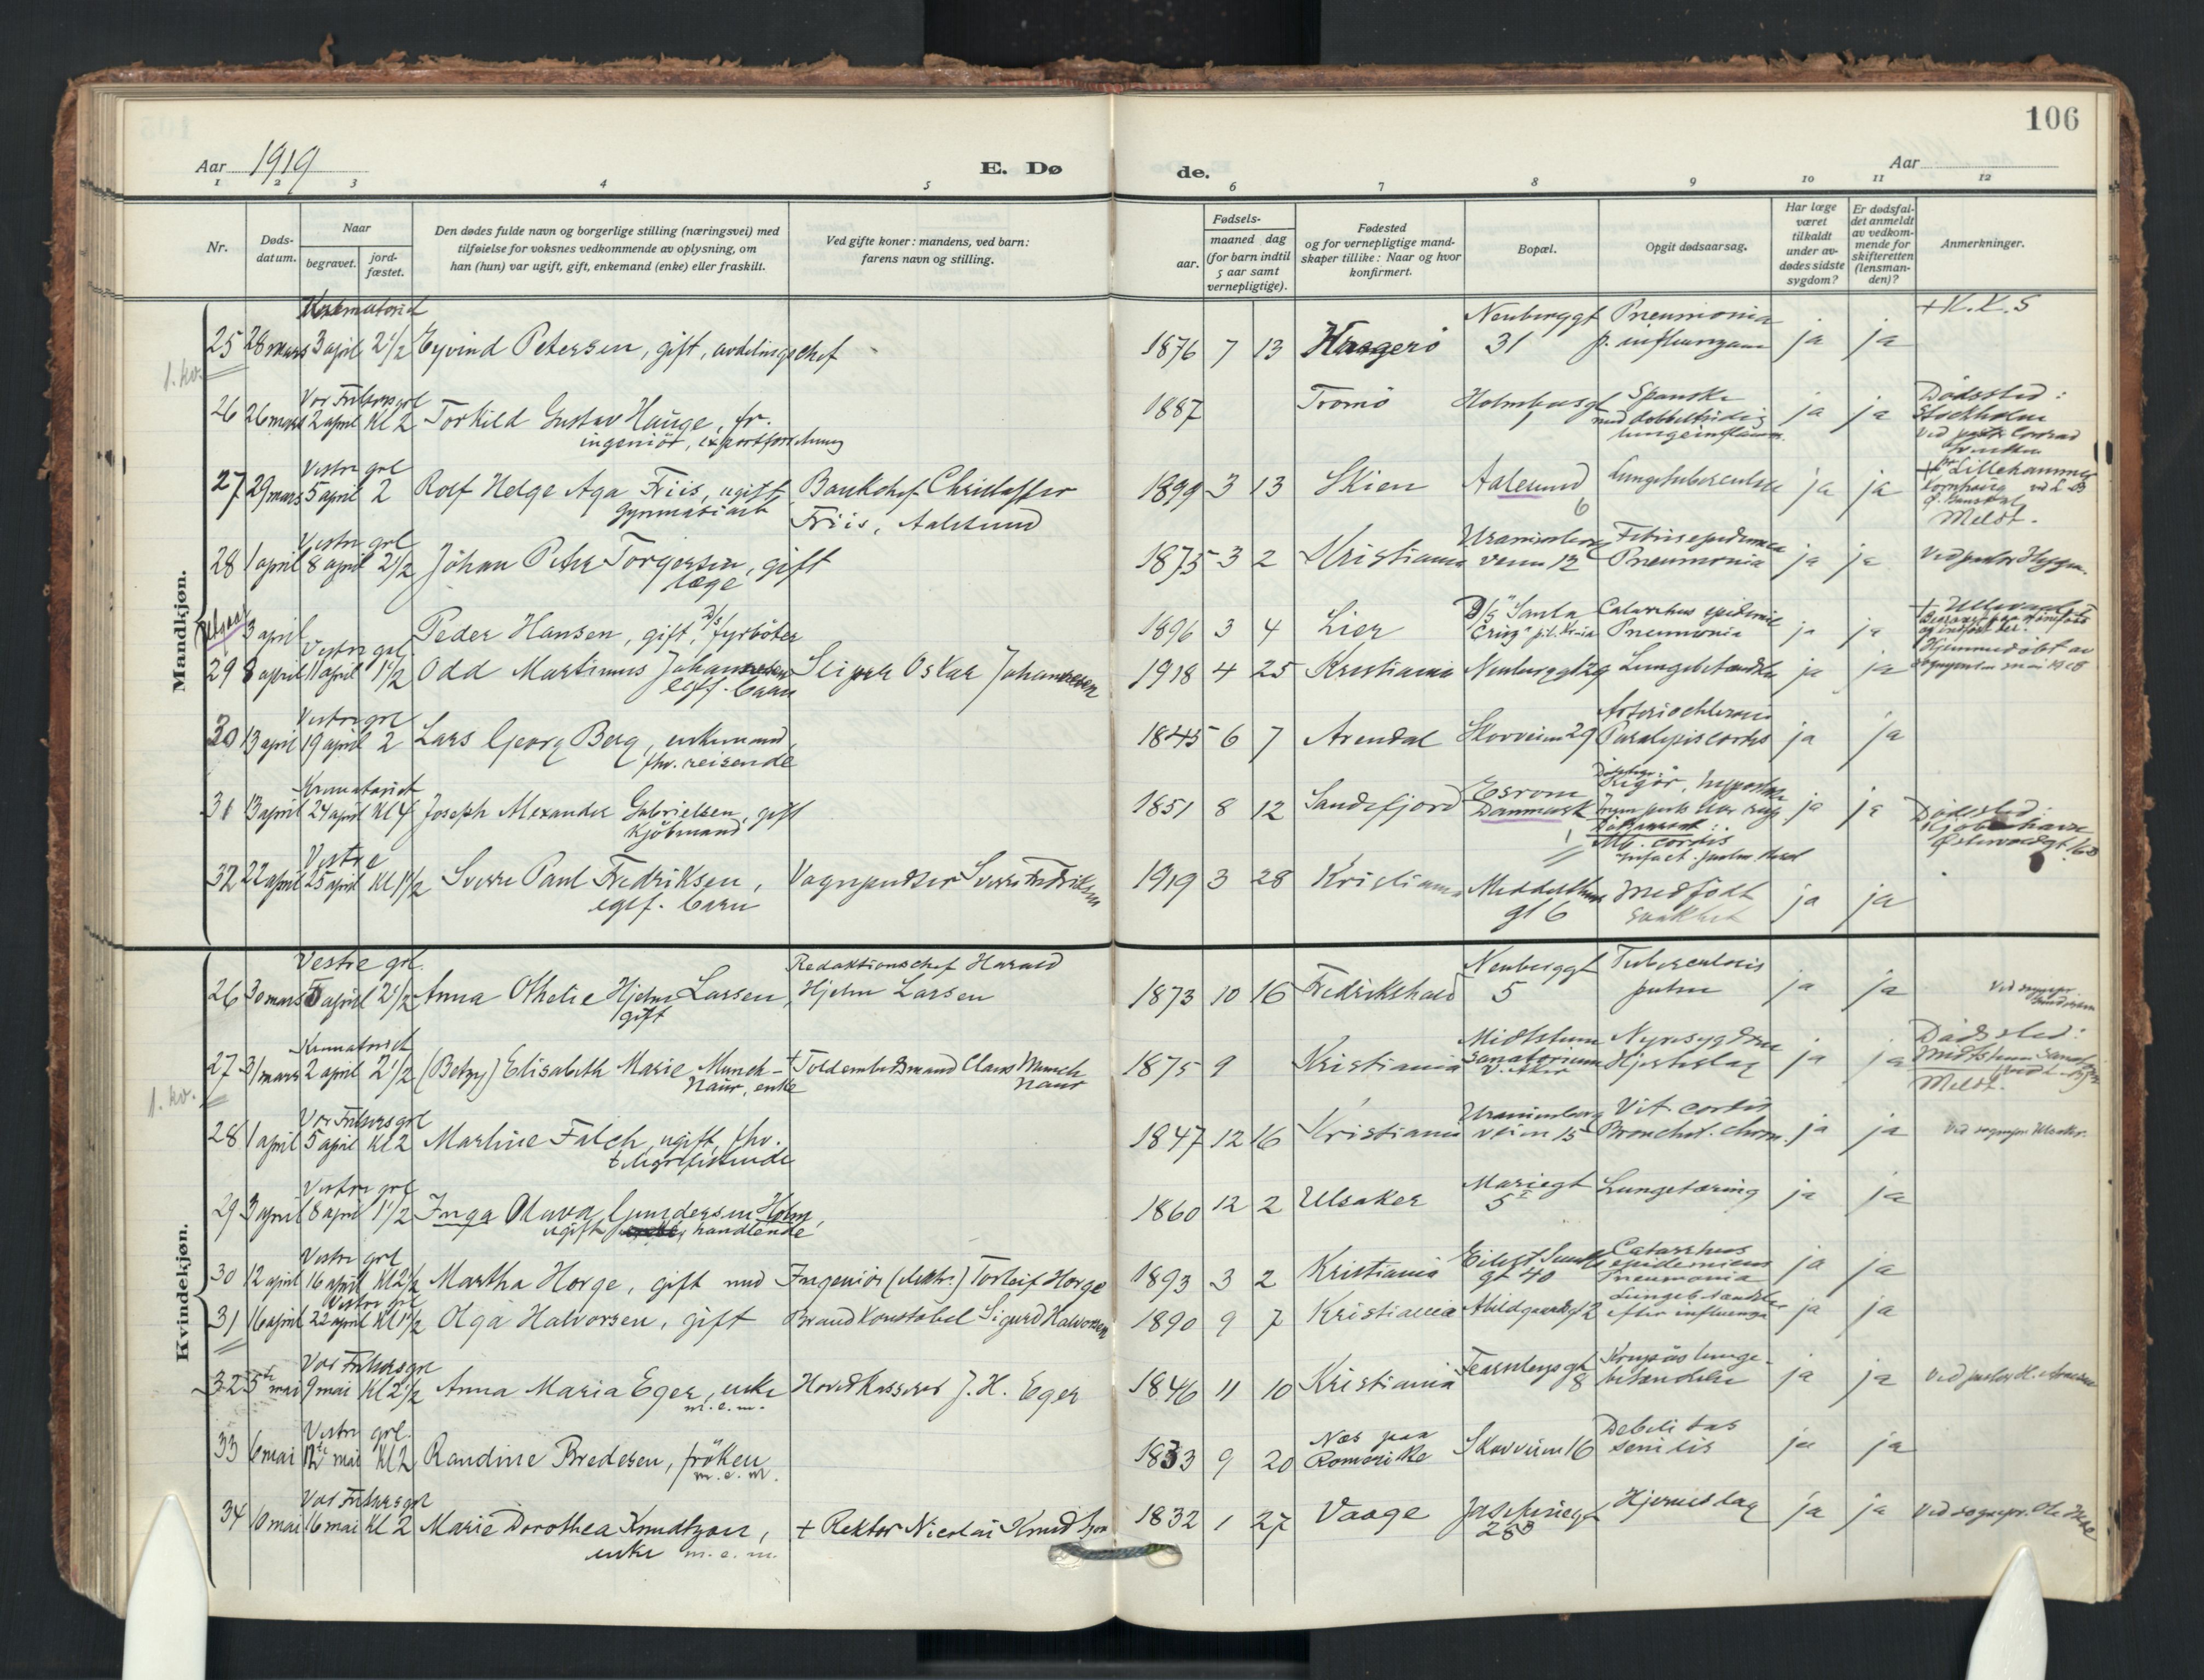 106
Aar 1919
E. Dø
de.
Aar
1 2 3 4 5 6 7 8 9 10 11 12
Nr.
Døds-
datum.
Naar
begravet.
jord-
fæstet.
Den dødes fulde navn og borgerlige stilling (næringsvei) med
tilføielse for voksnes vedkommende av oplysning, om
han (hun) var ugift, gift, enkemand (enke) eller fraskilt.
Ved gifte koner: mandens, ved barn:
farens navn og stilling.
Fødsels-
aar.
maaned dag
(for barn indtil
5 aar samt
vernepligtige).
Fødested
og for vernepligtige mand-
skaper tillike: Naar og hvor
konfirmert.
Bopæl.
Opgit dødsaarsag.
Har læge
været
tilkaldt
under av-
dødes sidste
sygdom?
Er dødsfal-
det anmeldt
av vedkom-
mende for
skifteretten
(lensman-
den)?
Anmerkninger.
Mandkjøn.
Krematoriet Neuberggt Pneumonia + K. K. S
25 28 mars 3 april 2 1/2 Eyvind Petersen, gift, avdelingschef 1876 7 13 Haagerö 31 p. influenzam ja ja
1. kv.
Vor Frelsers grl Spanske Dödssted:
26 26 mars 2 april Kl 2 Torkild Gustav Hauge, fr. 1887 Tromö 1 med dobbeltsidig ja ja Stockholm
ingeniör, exportforretning
Vestre grl
27 29 mars 5 april 2 Rolf Helge Aga Friis, ugift, Bankchef Christoffer 1899 3 13 Skien Aalesund Lungetuberculose ja ja Lillehammer
gymnasiast Friis, Aalesund 6 Meldt.
Vestre grl Uranienborg
28 1 april 8 april 2 1/2 Johan Peter Torgersen, gift 1875 3 2 Kristiania veien 12 Pneumonia ja ja Ved pastor
læge
3 april Peder Hansen, gift, D/S fyrböter 1896 3 4 Lier D/S "Santa Cruz" Catarrhus epidemic Pneumonia ja ja + Ullevaal
Vestre grl
29 8 april 11 april 1 1/2 Odd Martinus Johannesen Sliper Oskar Johannesen 1918 4 25 Kristiania Neuberggt 29 Lungebetændelse ja ja Hjemmedöbt av
egtf. barn
Vestre grl
30 13 april 19 april 2 Lars Georg Berg, enkemand, 1845 6 7 Arendal Skovveien 29 Paralysis cordis ja ja
fhv. reisende
Krematoriet Esrom
31 13 april 24 april Kl 4 Joseph Alexander Gabrielsen, gift 1851 8 12 Sandefjord Danmark ja ja Dödssted
Kjöbmand Mb. cordis
Vestre
32 22 april 25 april Kl 1 1/2 Sverre Paul Fredriksen, Vognpudser Sverre Fredriksen 1919 3 28 Kristiania Middelthuns Medfödt ja ja
egtf. barn gt 6 svakhet
Kvindekjøn.
Vestre grl. Redaktionschef Harald Neuberggt Tuberculosis
26 30 mars 5 april 2 1/2 Anna Othelie Hjelm Larsen, Hjelm Larsen 1873 10 16 Fredrikshald 5 pulm ja ja Ved sognepr.
gift
Krematoriet Midtstuen Nyresygdom Dödssted:
27 31 mars 2 april 2 1/2 (Betzy) Elisabeth Marie Munch- + Toldembedsmand Claus Munch 1875 9 Kristiania sanatorium Hjerteslag ja ja Midtstuen Sanat.
1. kv. Naur, enke Naur V. Aker Meldt.
Vor Frelsers grl Uranienborg Vit. cordis
28 1 april 5 april Kl 2 Martine Falch, ugift, fhv. 1847 12 16 Kristiania veien 15 Bronchit. chron. ja ja
telegrafistinde
Vestre grl Mariegt
29 3 april 8 april 1 1/2 Inga Olava Gundersen Holm, 1860 12 2 Ulsaker 5 I Lungetæring ja ja
ugift, handlende
Vestre grl Eilert Sundts Catarrhus
30 12 april 16 april Kl 2 1/2 Martha Horge, gift med Ingeniör (elektr.) Torleif Horge 1893 3 2 Kristiania gt 40 epidemicus Pneumonia ja ja
Vestre grl Lungebetændelse
31 16 april 22 april Kl 1 1/2 Olga Halvorsen, gift Brandkonstabel Sigurd Halvorsen 1890 9 7 Kristiania Abildgaardsgt 2 efter influenza ja ja
Vor Frelsers grl Fearnleys gt Krupös lunge-
32 5te mai 9 mai Kl 2 1/2 Anna Maria Eger, enke Hovedkasserer J. H. Eger 1846 11 10 Kristiania 8 betændelse ja ja Ved pastor H.
m. e. m.
Vestre grl. Nes paa Debilitas
33 6 mai 12te mai Kl 2 Randine Bredesen, fröken 1833 9 20 Romerike Skovveien 16 senilis ja ja
m. e. m.
Vor Frelsers grl
34 10 mai 16 mai Kl 2 Marie Dorothea Knudtzon, + Rektor Nicolai Knudtzon 1832 1 27 Vaage Josefinegt Hjerneslag ja ja Ved sognepr.
enke m. e. m. 28 B